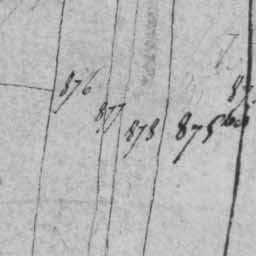 876
877
878
875 bis